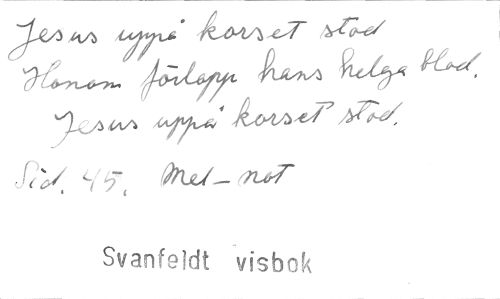 Jesus uppå korset stod
Honom förlopp hans helga blod.
Jesus uppå korset stod.
Sid. 45. Mel-not
Svanfeldt visbok